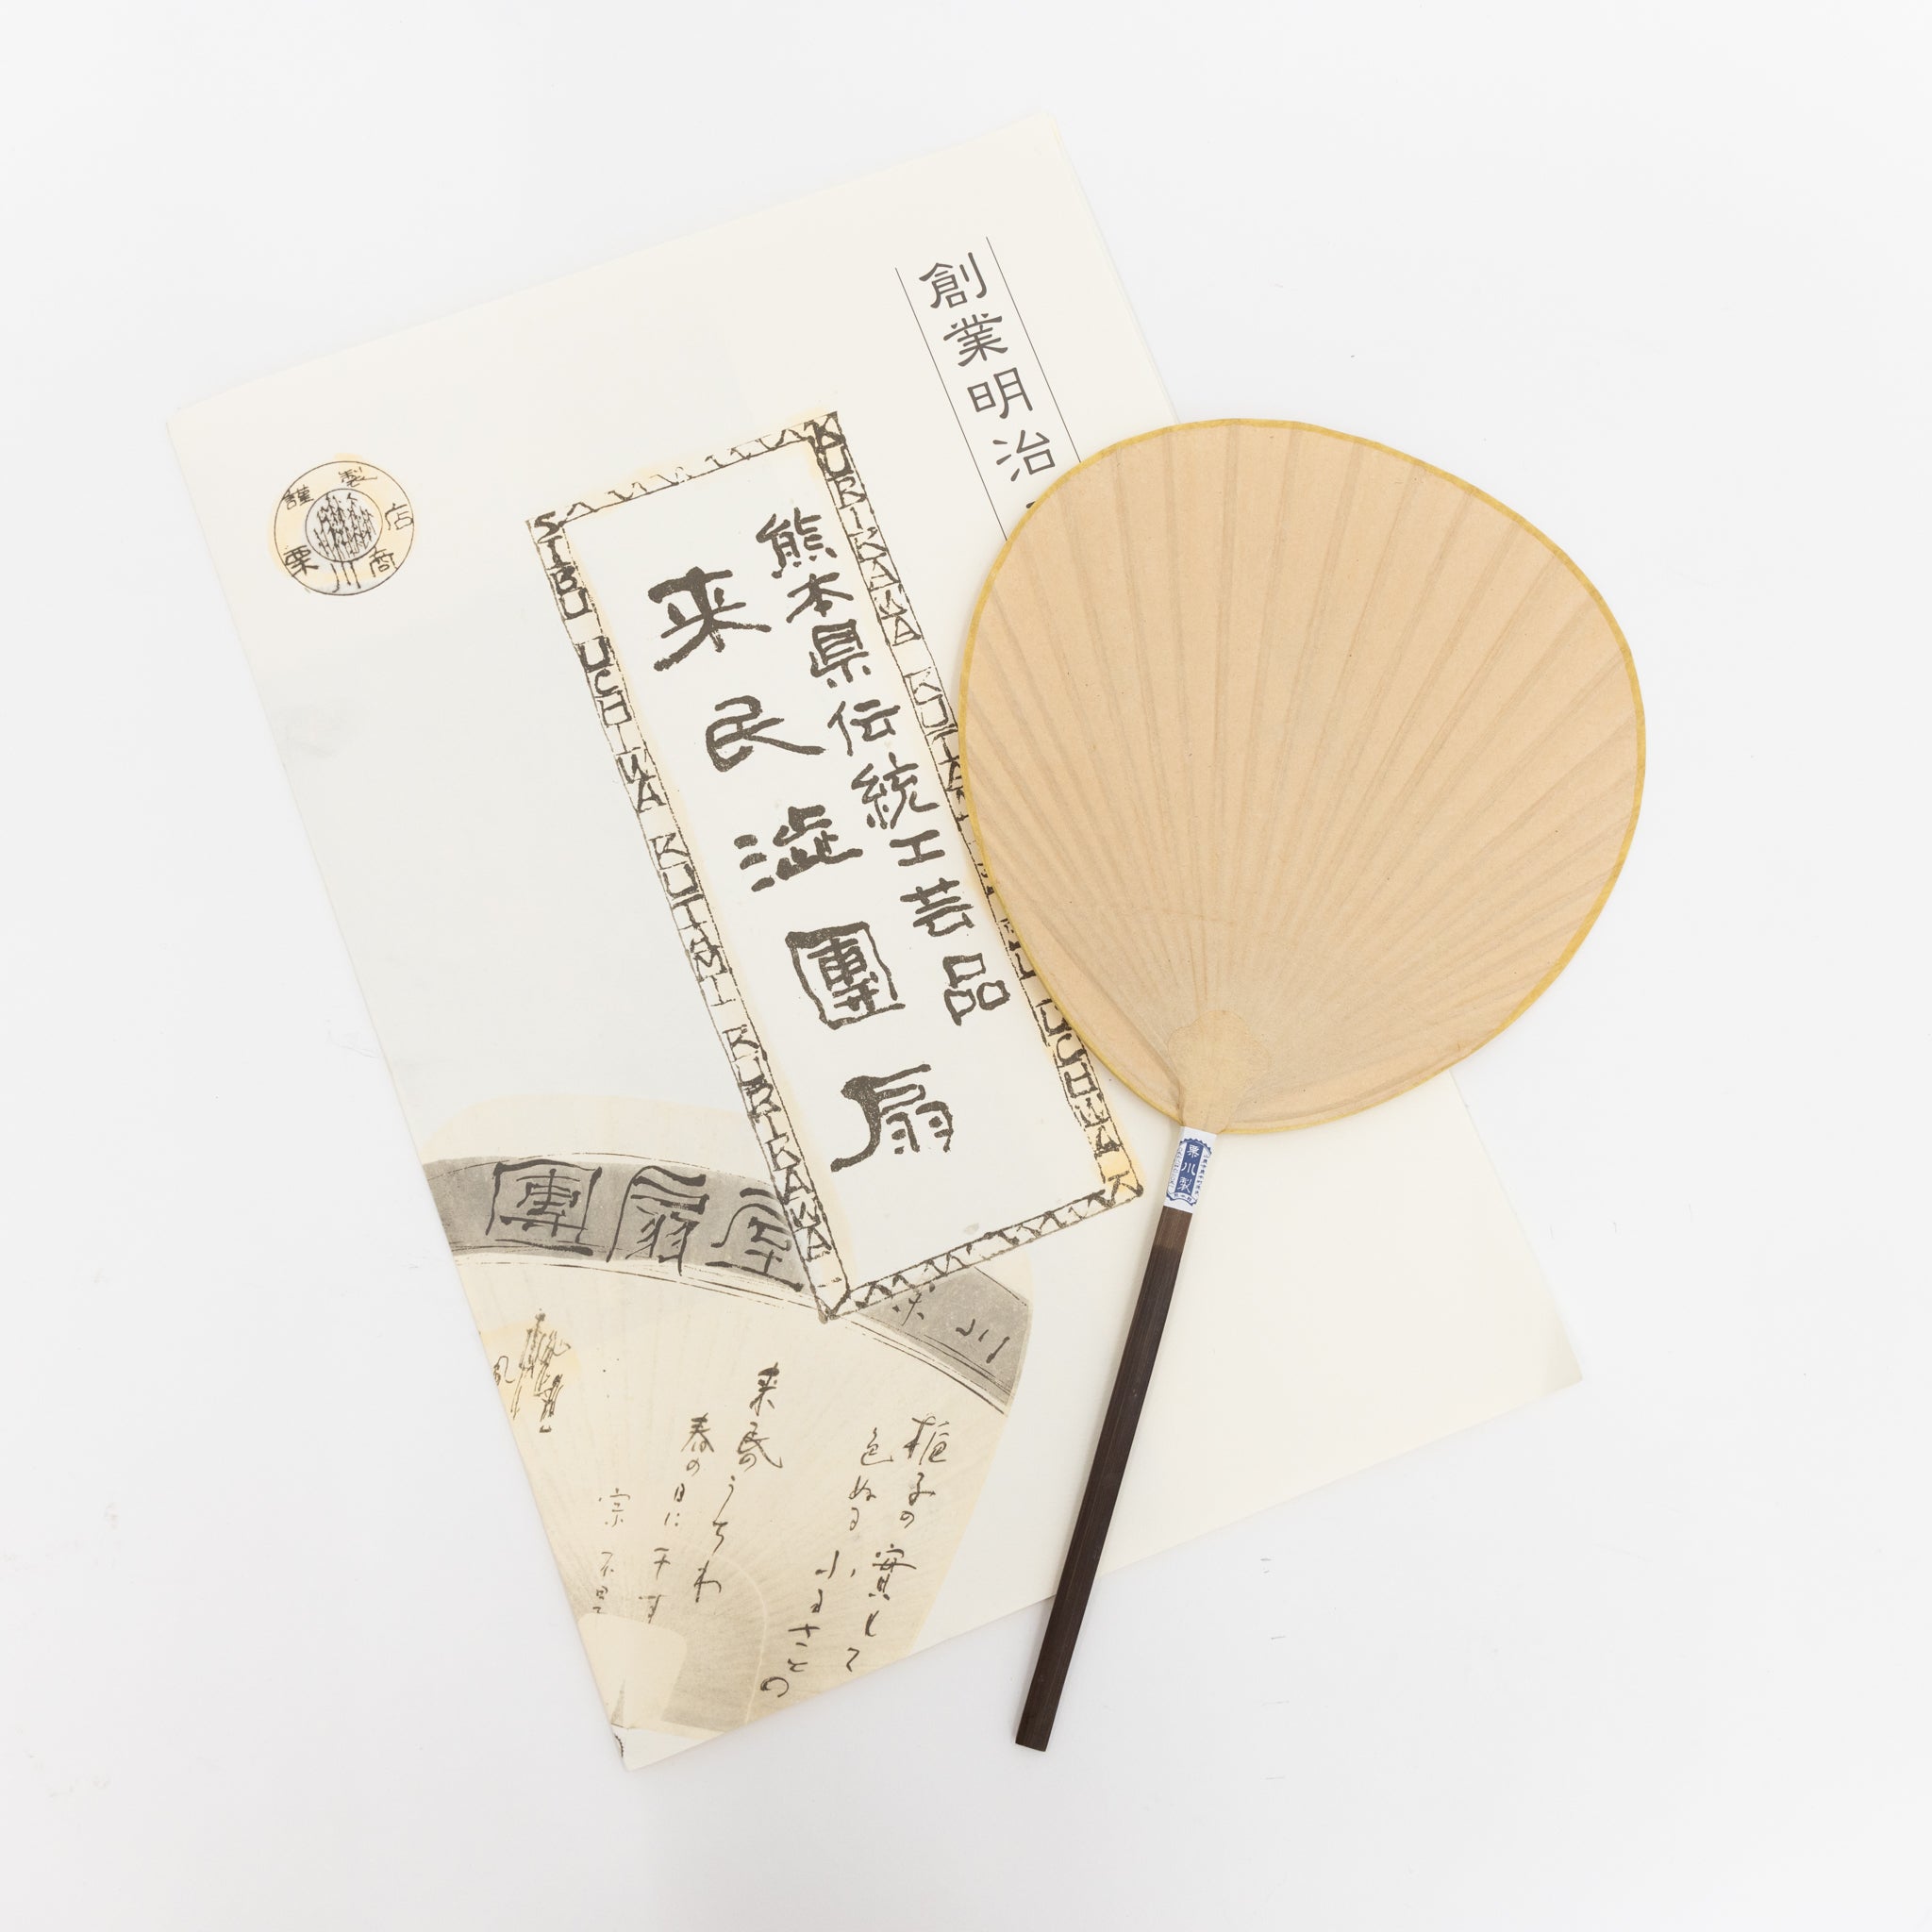 創業明治
熊本県伝統工芸品
来民渋團扇
謹製
栗川商店
KURIKAWA KUTAMI
UCHIWA
SIBU UCHIWA KUTAMI KURIKAWA
團扇屋
栗川
梔子の實して
色ぬる小まさこの
来民のうちわ
春の日に干す
宗不旱
栗川製